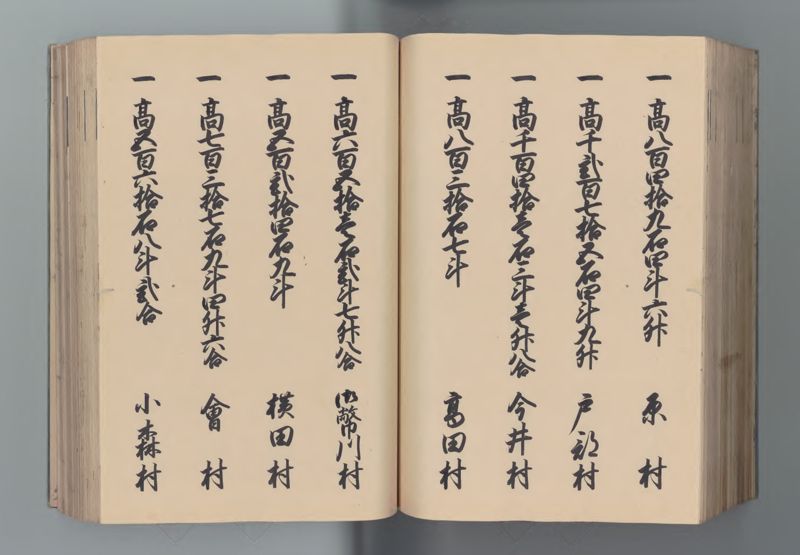 一 高八百四拾九石四斗六升 原村
一 高千弐百七拾五石四斗九升 戸部村
一 高千百四拾壱石三斗壱升八合 今井村
一 高八百三拾石七斗 高田村
一 高六百五拾壱石弐斗七升八合 御幣川村
一 高五百弐拾四石九斗 横田村
一 高七百三拾七石九斗四升六合 會村
一 高五百六拾石八斗弐合 小森村